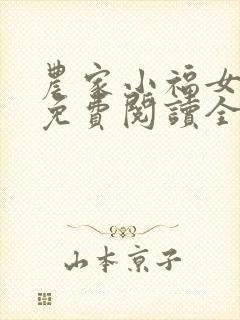 農家小福女
免費閱讀全
山本京子